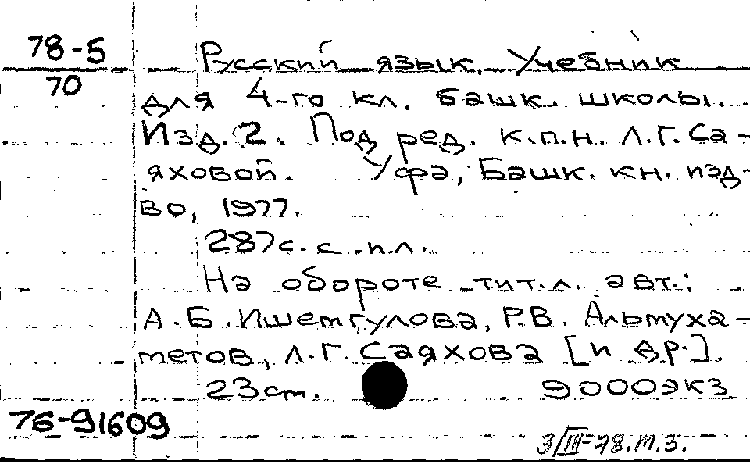 78-5
70
Русский язык. Учебник
для 4-го кл. башк. школы.
Изд. 2. Под ред. к.п.н. Л.Г. Са-
яховой. Уфа, Башк. кн. изд-
во, 1977.
287с. с. ил.
На обороте тит. л. авт.:
А.Б. Ишемгулова, Р.В. Альмуха-
метов, Л.Г. Саяхова [и др.].
23см. 9000экз
76-91609
3/III-78.м.з.